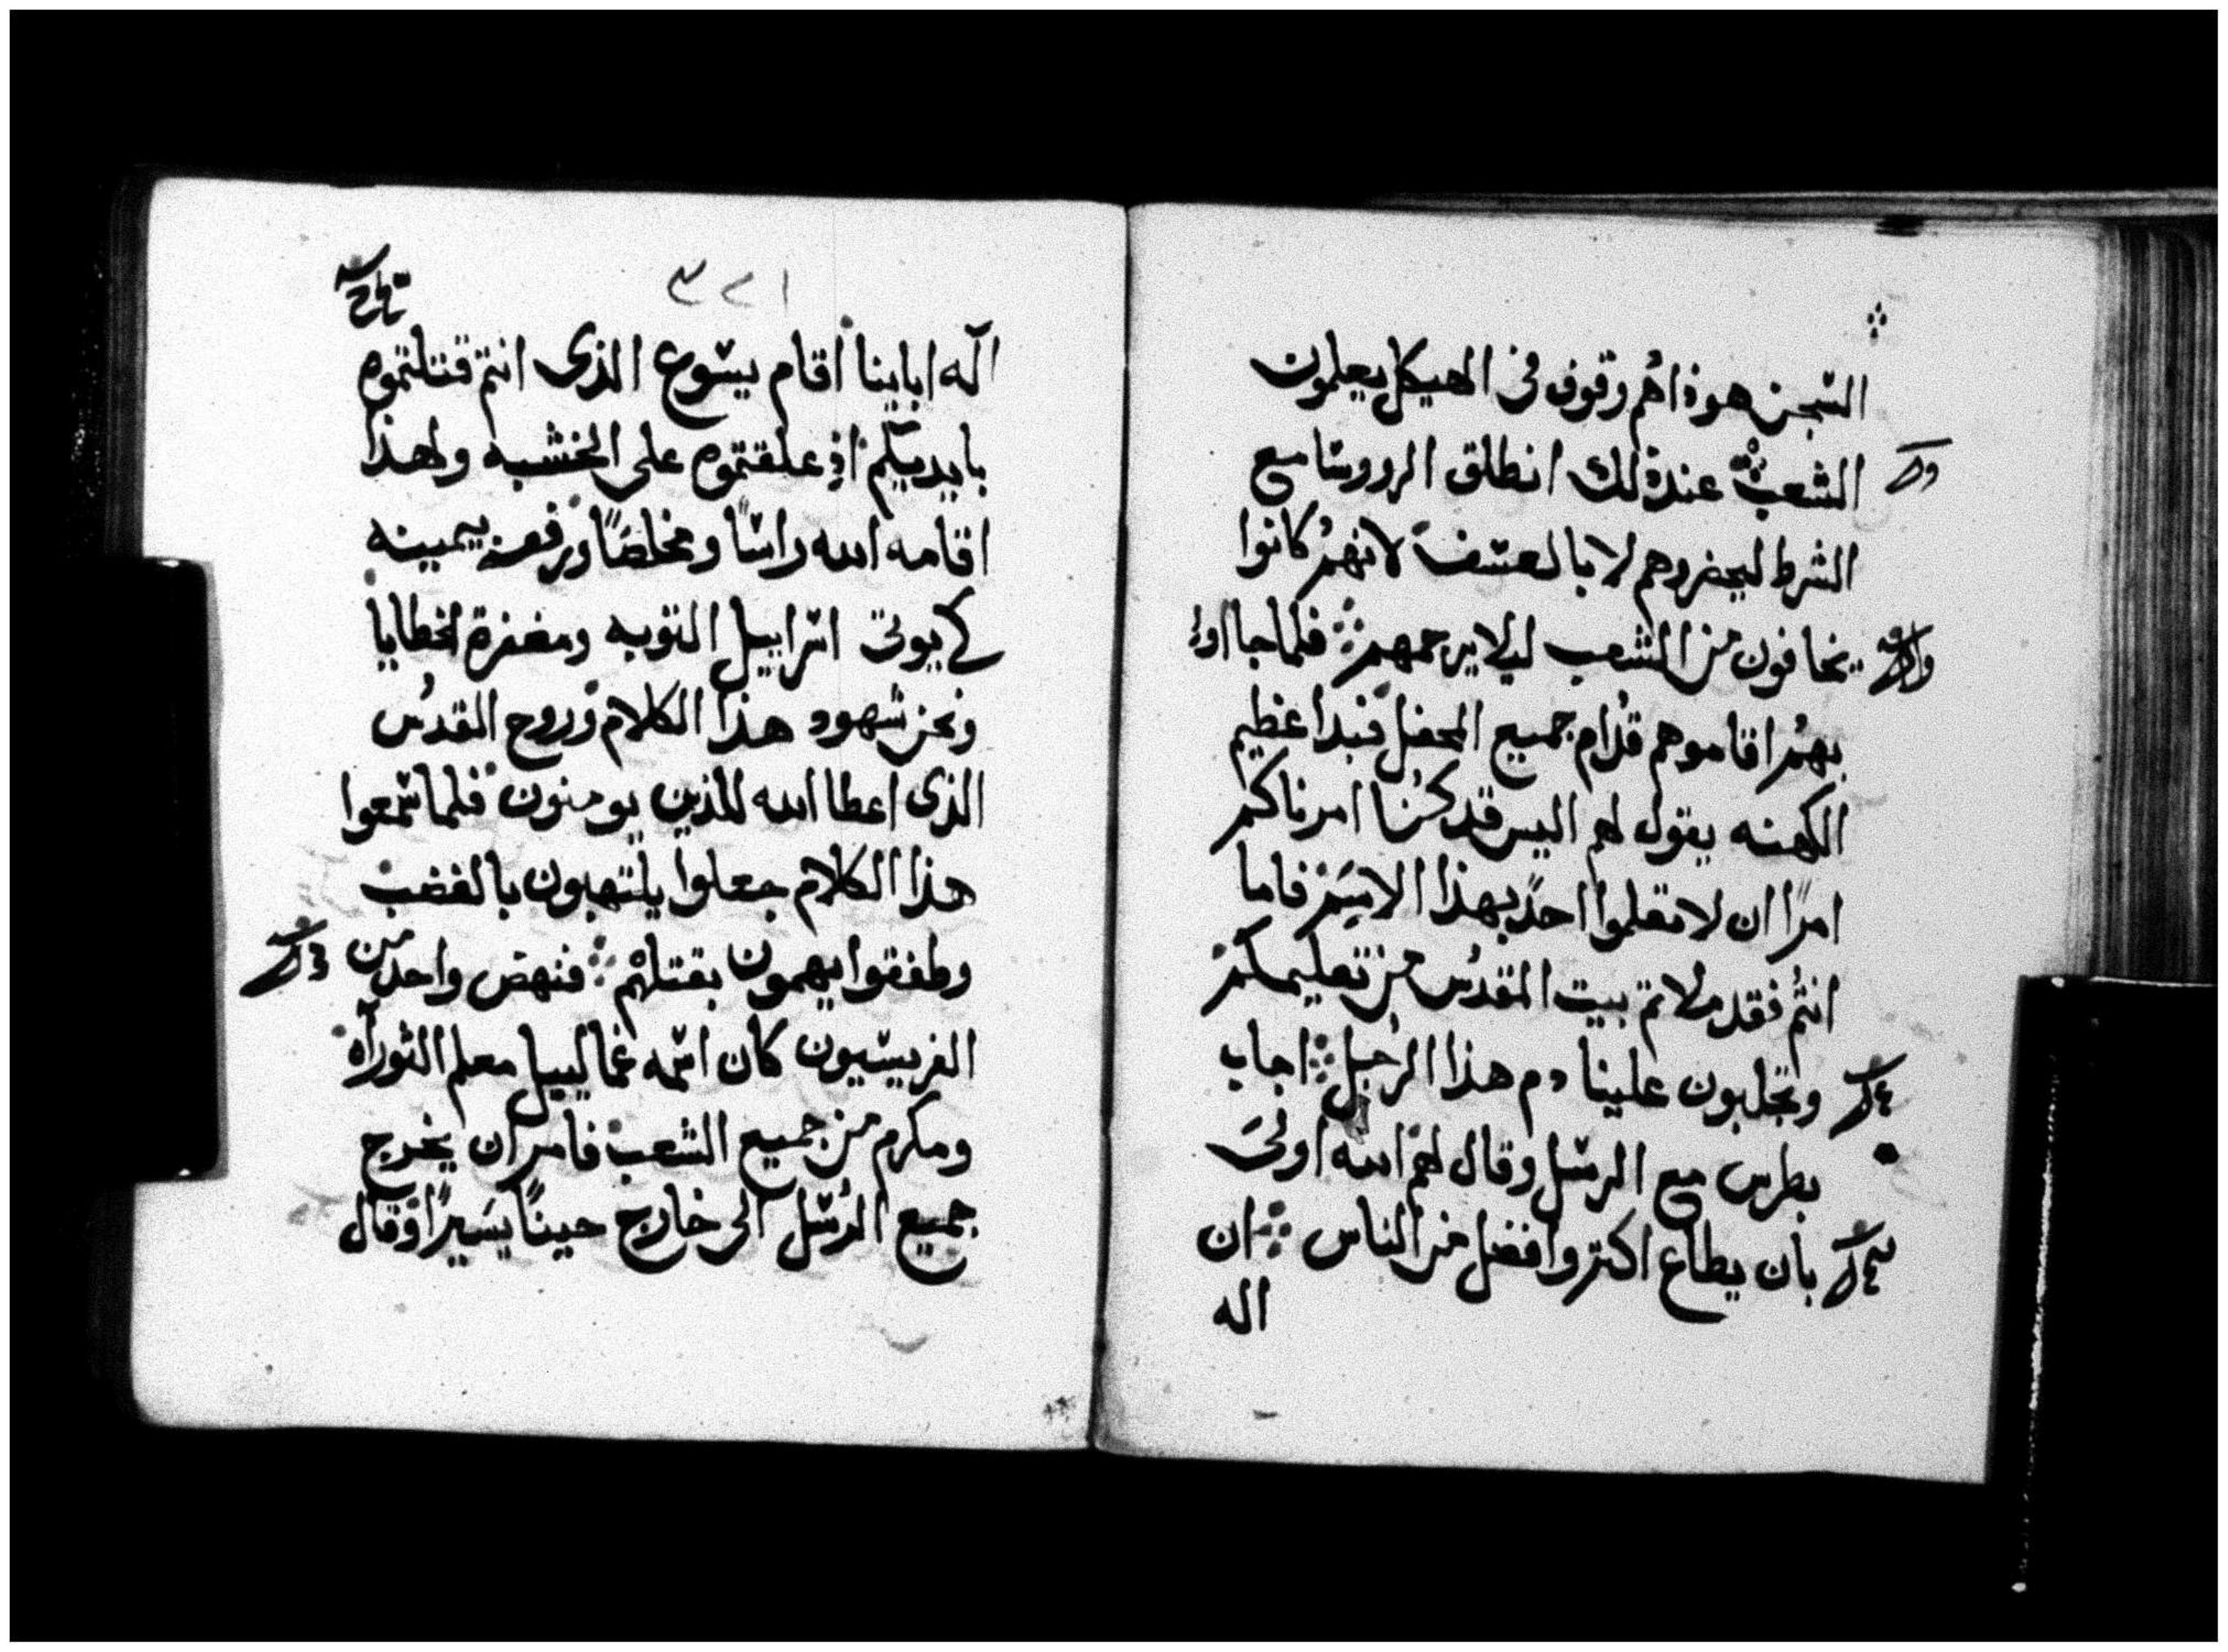 السجن هوذا هم وقوف في الهيكل يعلمون
الشعب عند ذلك انطلق الرووسا مع
الشرط ليحضروهم لا بالعسف لانهم كانوا
يخافون من الشعب ليلا يرجمهم فلما جااوا
بهم اقاموهم قدام جميع المحفل فبدا عظيم
الكهنه يقول لهم اليس قد كنا امرناكم
امرًا ان لا تعلموا احدً بهذا الاسم فاما
انتم فقد ملاتم بيت المقدس من تعليمكم
وتجلبون علينا دم هذا الرجل اجاب
بطرس مع الرسل وقال لهم الله اولى
بان يطاع اكتر وافضل من الناس ان
اله
١ ٢ ٣
اله اباينا اقام يسوع الذى انتم قتلتموه
بايديكم اذ علقتموه على الخشبه ولهذا
اقامه الله راسًا ومخلصًا ورفعه بيمينه
كي يوتى اسراييل التوبه ومغفرة الخطايا
ونحن شهود هذا الكلام وروح القدس
الذى اعطا الله للذين يومنون فلما سمعوا
هذا الكلام جعلوا يلتهبون بالغضب
وطفقوا يهمون بقتلهم فنهض واحد من
الفريسيون كان اسمه غمالييل معلم التوراه
ومكرم من جميع الشعب فامر ان يخرج
جميع الرسل الى خارج حينًا يسيرًا وقال